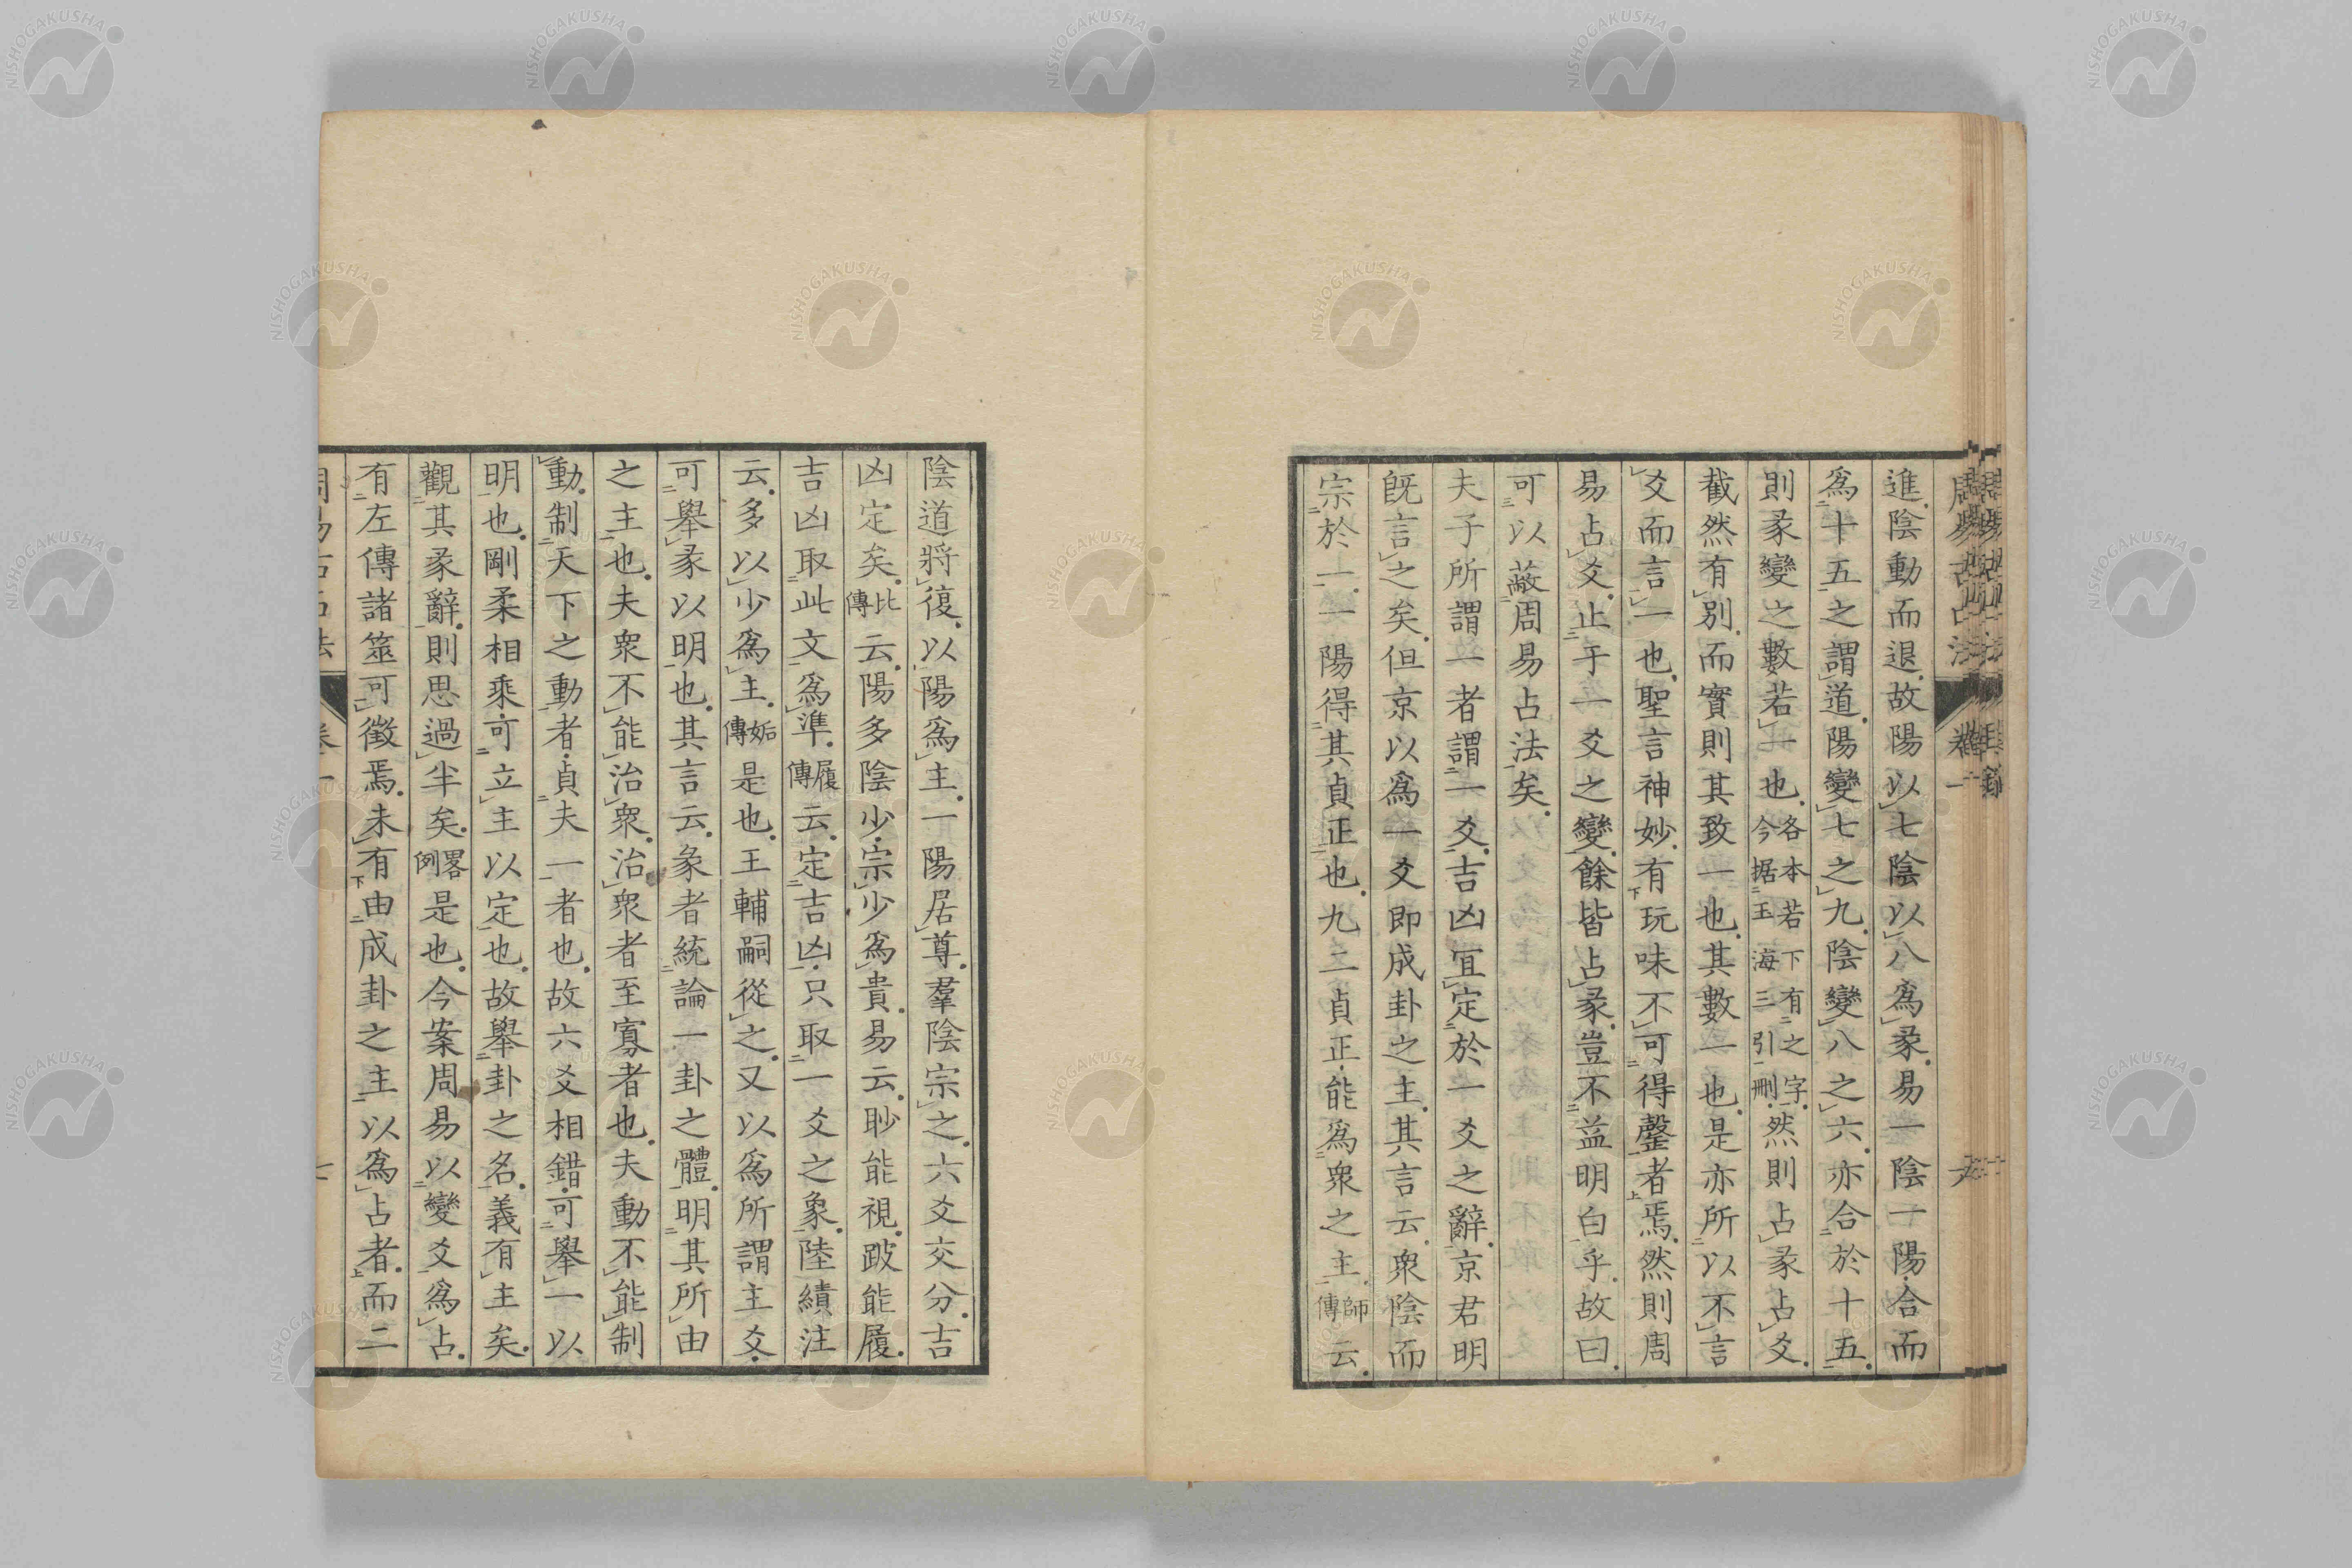 進陰動而退故陽以七陰以八爲彖易一陰一陽合而
爲十五之謂道陽變七之九陰變八之六亦合於十五
則彖變之數若一也各本若下有之字今据玉海三引刪然則占彖占爻
截然有別而實則其致一也其數一也是亦所以不言
爻而言一也聖言神妙有玩味不可得罄者焉然則周
易占爻止于一爻之變餘皆占彖豈不益明白乎故曰
可以蔽周易占法矣
夫子所謂一者謂一爻吉凶宜定於一爻之辭京君明
既言之矣但京以爲一爻即成卦之主其言云衆陰而
宗於一一陽得其貞正也九二貞正能爲衆之主師傳云
陰道將復以陽爲主一陽居尊羣陰宗之六爻交分吉
凶定矣比傳云陽多陰少宗少爲貴易云眇能視跛能履
吉凶取此文爲準履傳云定吉凶只取一爻之象陸績注
云多以少爲主姤傳是也王輔嗣從之又以爲所謂主爻
可舉彖以明也其言云彖者統論一卦之體明其所由
之主也夫衆不能治衆治衆者至寡者也夫動不能制
動制天下之動者貞夫一者也故六爻相錯可舉一以
明也剛柔相乘可立主以定也故舉卦之名義有主矣
觀其彖辭則思過半矣畧例是也今案周易以變爻爲占
有左傳諸筮可徵焉未有由成卦之主以爲占者而二
周易古占法 卷一
NISHOGAKUSHA